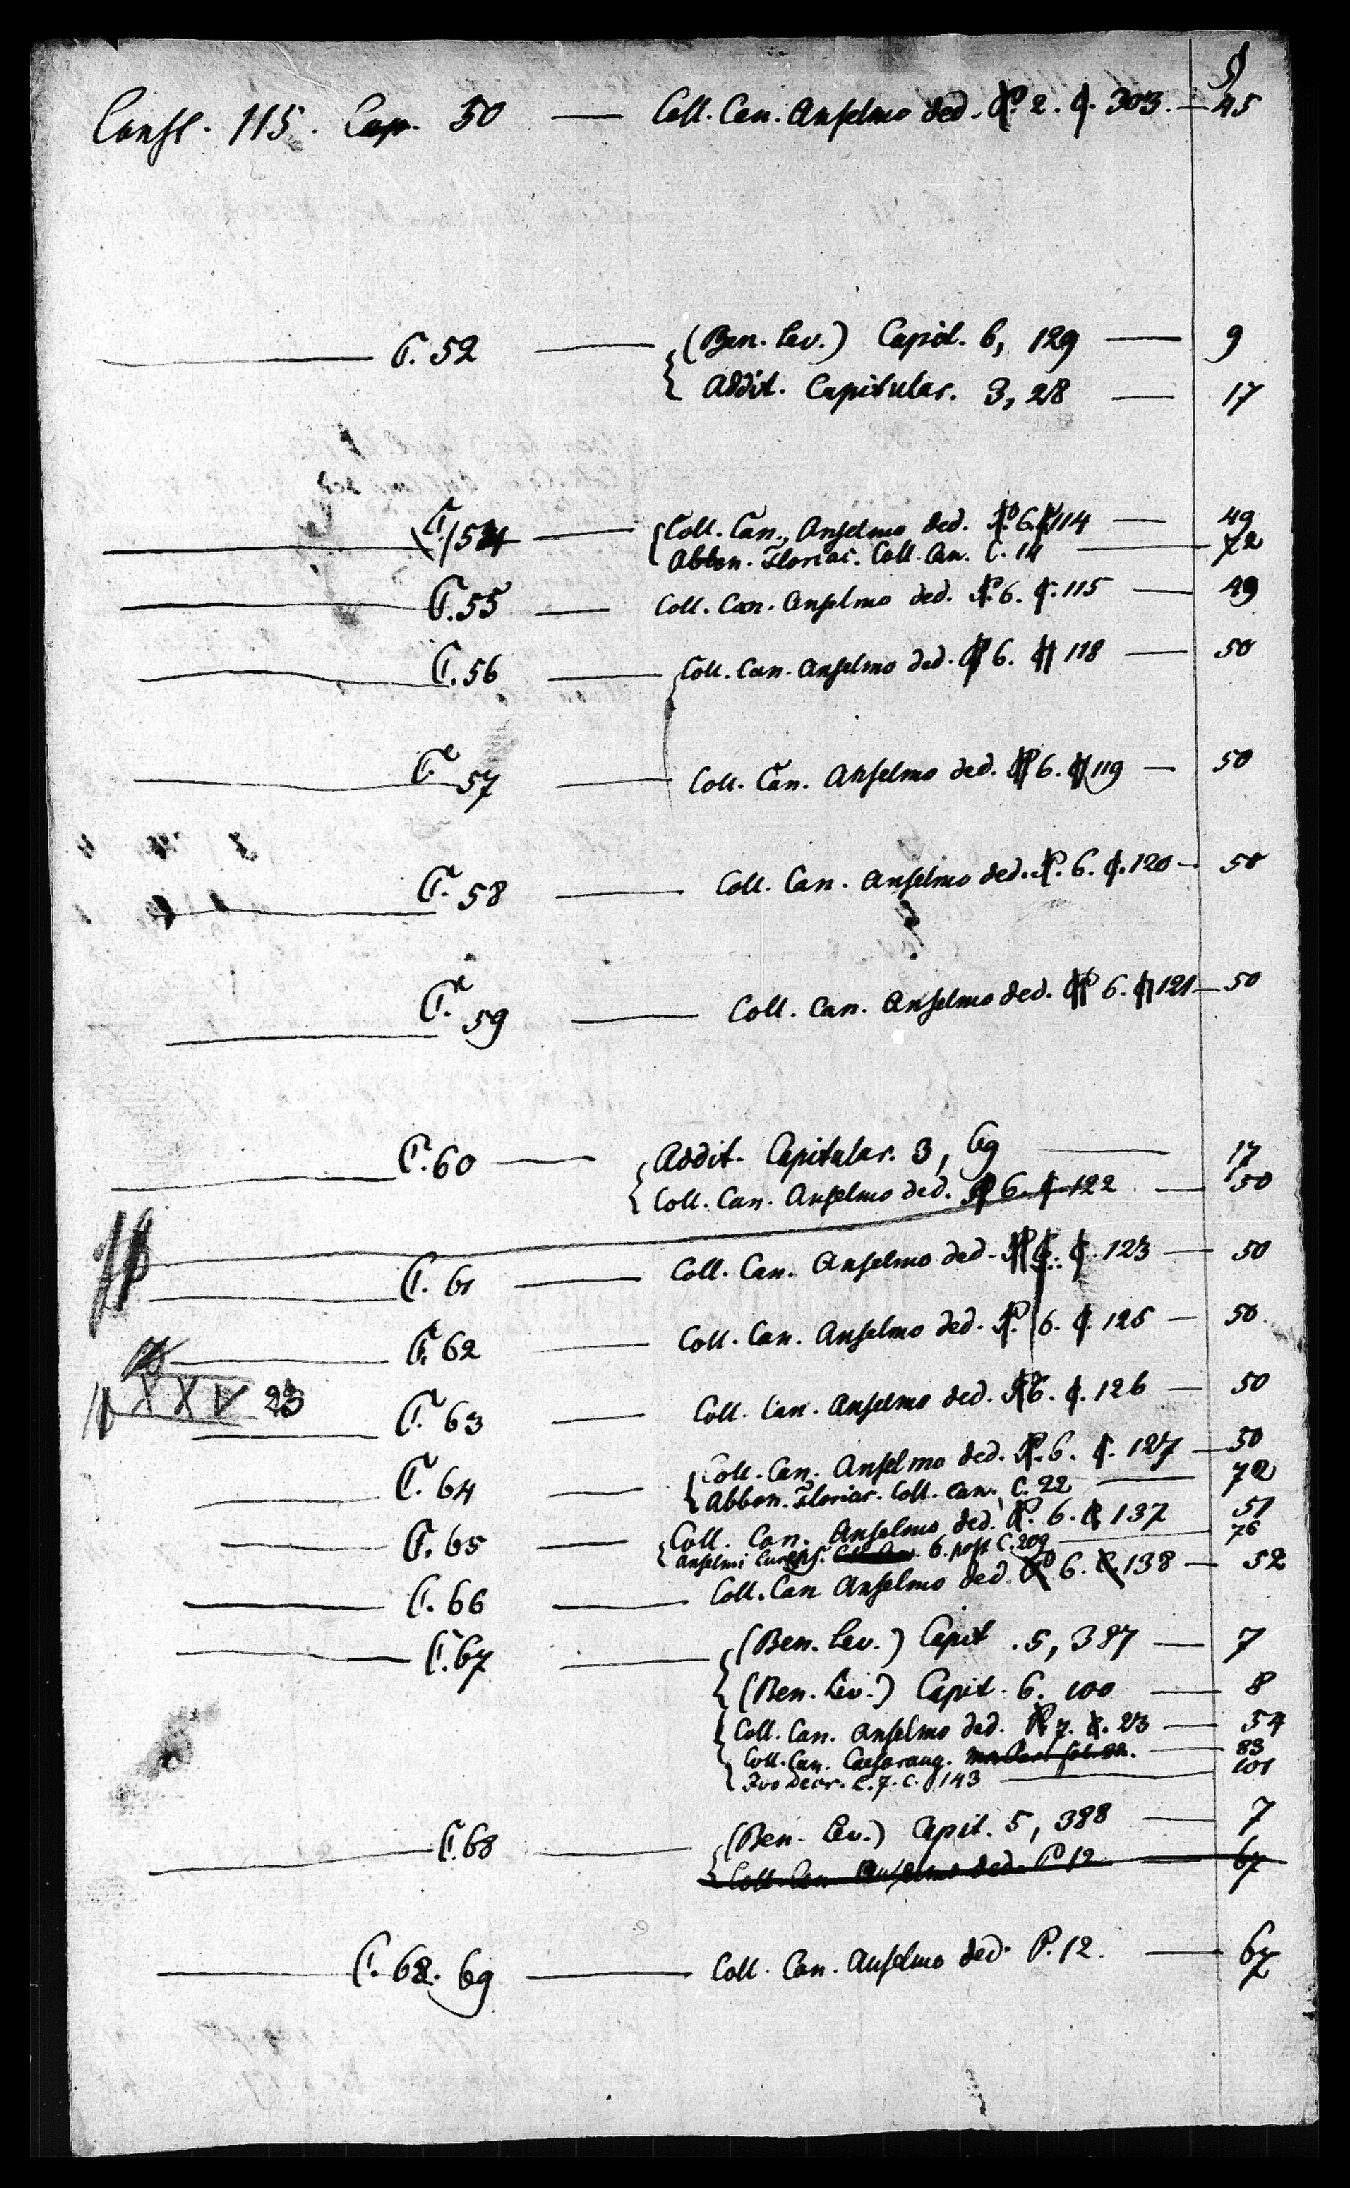 Const. 115. Cap. 50 — Coll. Can. Anselmo ded. P. 2. C. 303. — 45
— C. 52 — (Ben. Lev.) Capit. 6, 129 — 9
Addit. Capitular. 3, 28 — 17
— C. 54 — Coll. Can. Anselmo ded. P. 6. C. 114 — 49
Abbon. Floriac. Coll. Can. C. 14 — 72
— C. 55 — Coll. Can. Anselmo ded. P. 6. C. 115 — 49
— C. 56 — Coll. Can. Anselmo ded. P 6. C 118 — 50
— C. 57 — Coll. Can. Anselmo ded. P 6. C 119 — 50
— C. 58 — Coll. Can. Anselmo ded. P. 6. C. 120 — 50
— C. 59 — Coll. Can. Anselmo ded. P 6. C 121 — 50
— C. 60 — Addit. Capitular. 3, 69 — 17
Coll. Can. Anselmo ded. P 6. C. 122 — 50
— C. 61 — Coll. Can. Anselmo ded. P 6. C. 123 — 50
— C. 62 — Coll. Can. Anselmo ded. P. 6. C. 125 — 50
XXV 23
— C. 63 — Coll. Can. Anselmo ded. P 6. C. 126 — 50
— C. 64 — Coll. Can. Anselmo ded. P. 6. C. 127 — 50
Abbon. Floriac. Coll. Can. C. 22 — 72
— C. 65 — Coll. Can. Anselmo ded. P. 6. C 137 — 51
Anselmi Lucens. Coll. Can. 6. post C. 209 — 76
— C. 66 — Coll. Can Anselmo ded. P 6. C. 138 — 52
— C. 67 — (Ben. Lev.) Capit. 5, 387 — 7
(Ben. Lev.) Capit. 6. 100 — 8
Coll. Can. Anselmo ded. P. 7. C. 23 — 54
Coll. Can. Caesaraug. — 83
Ivo Decr. P. 7. C. 143 — 101
— C. 68 — (Ben. Lev.) Capit. 5, 388 — 7
Coll. Can. Anselmo ded. P 12 — 67
— C. 68. 69 — Coll. Can. Anselmo ded. P. 12. — 67